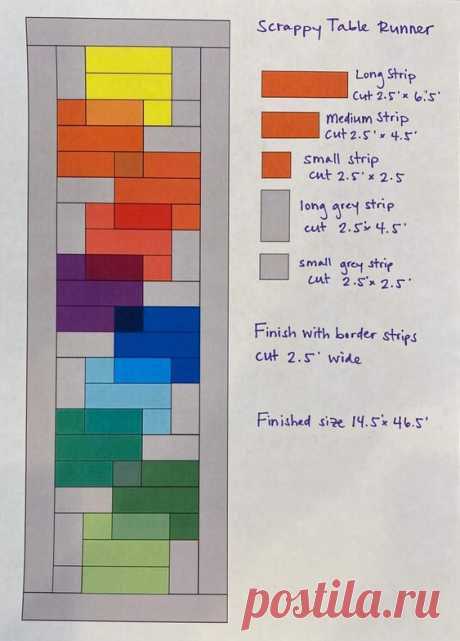 Scrappy Table Runner
Long Strip
Cut 2.5' × 6.5'
Medium Strip
Cut 2.5' × 4.5'
small strip
cut 2.5' × 2.5
long grey strip
cut 2.5' × 4.5'
small grey strip
cut 2.5' × 2.5'
Finish with border strips
cut 2.5' wide
Finished size 14.5' × 46.5'
postila.ru